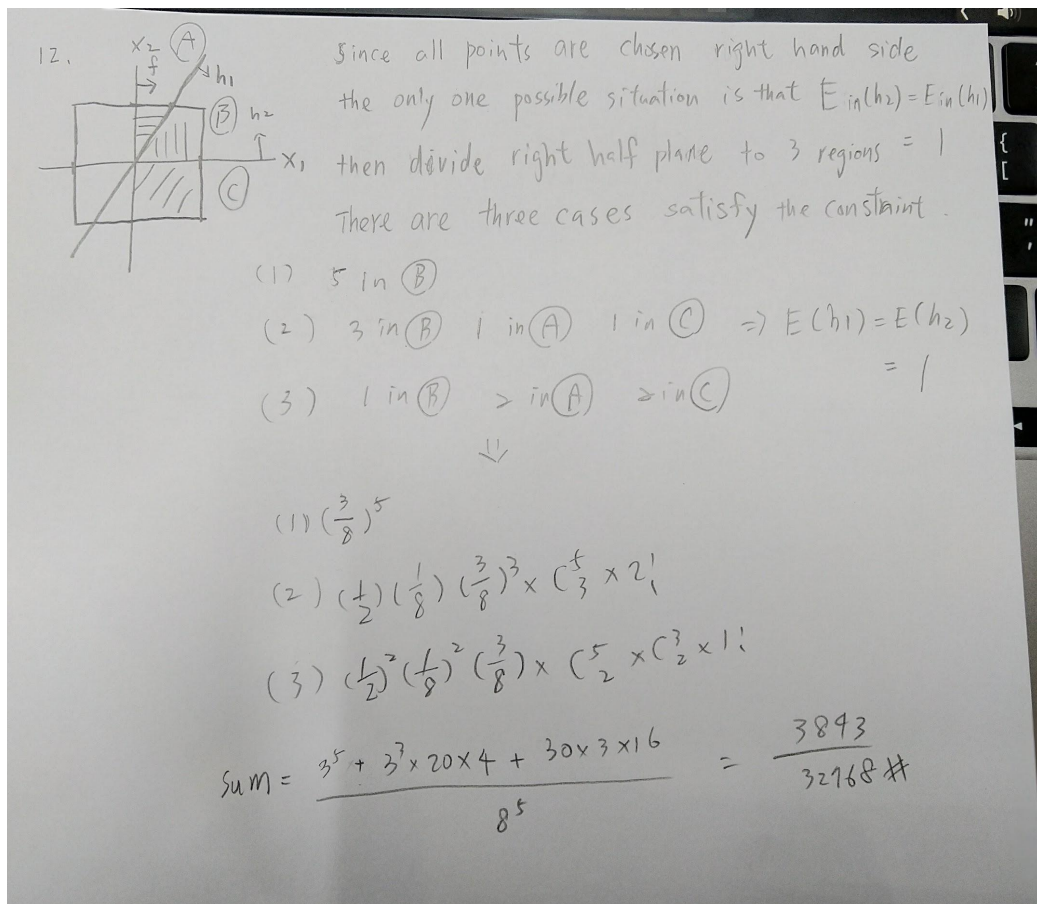 12.
X2
f
A
h1
B
h2
X1
C
Since all points are chosen right hand side
the only one possible situation is that Ein(h2) = Ein(h1)
then divide right half plane to 3 regions = 1
There are three cases satisfy the constraint.
(1) 5 in B
(2) 3 in B 1 in A 1 in C => E(h1) = E(h2)
= 1
(3) 1 in B 2 in A 2 in C
⇓
(1) (3/8)^5
(2) (1/2)(1/8)(3/8)^3 × C^5_3 × 2!
(3) (1/2)^2 (1/8)^2 (3/8) × C^5_2 × C^3_2 × 1!
Sum = (3^5 + 3^3 × 20 × 4 + 30 × 3 × 16) / 8^5 = 3843 / 32768 #
{
[
"
'